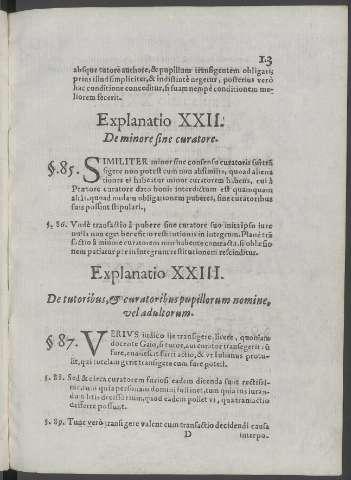 13
absque tutore authore, & pupillum transigentem obligari;
prius illud simpliciter, & indistinte negetur, posterius verò
hac conditione conceditur, si suam nempè conditionem me-
liorem fecerit.
Explanatio XXII.
De minore sine curatore.
§. 85. SIMILITER minor sine consensu curatoris
sigere non potest cum non absimilis, quoad aliena
tiones et habeatur minor curatorem habens, cui à
Prætore curatore dato bonis interdictum est quamquam
aliàs, quoad nudam obligationem puberes, sine curatoribus
suis possint stipulari.
§. 86. Vndè transactio à pubere sine curatore suo inita ipso iure
nulla non eget beneficio restitutionis in integrum. Planè
sactio à minore curatorem non habente contracta, si
nem patiatur per in integrum restitutionem rescinditur.
Explanatio XXIII.
De tutoribus, & curatoribus pupillorum nomine,
vel adultorum.
§ 87. VERIUS iudico ijs transigere, licere, quoniam
docente Gaio, si tutor, aut curator transegerit
fure, euanescit furti actio, & vt Iulianus
lit, qui tutelam gerit transigere cum fure potest.
§. 88. Sed & circa curatorem furiosi eadem dicenda sunt
quia personam domini sustinet, cum quia
decissorium, quod eadem pollet vi, qua transactio
defferre possunt.
§. 89. Tunc verò transigere valent cum transactio decidendi causa
D interpo-